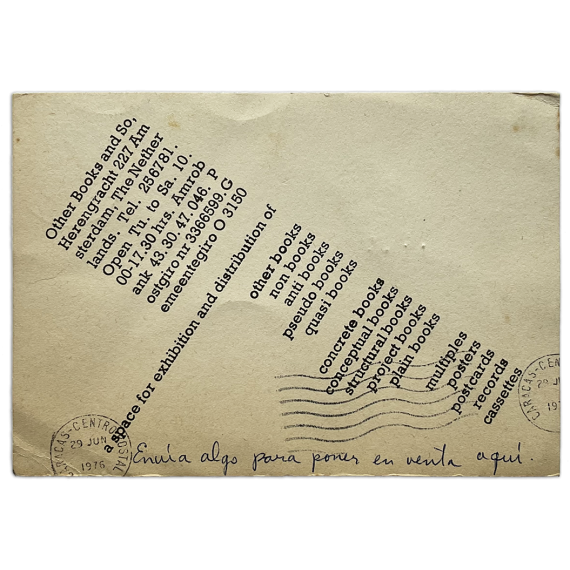 Other Books and So,
Herengracht 227 Am
sterdam, The Nether
lands. Tel. 256781.
Open Tu. to Sa. 10.
00-17.30 hrs. Amrob
ank 43.30.47.046. P
ostgiro nr 3366599. G
emeentegiro O 3150
a space for exhibition and distribution of
other books
non books
anti books
pseudo books
quasi books
concrete books
conceptual books
structural books
project books
plain books
multiples
posters
postcards
records
cassettes
CARACAS-CENTRO POSTAL
29 JUN
1976
CARACAS-CEN
29 JU
197
Envía algo para poner en venta aquí.